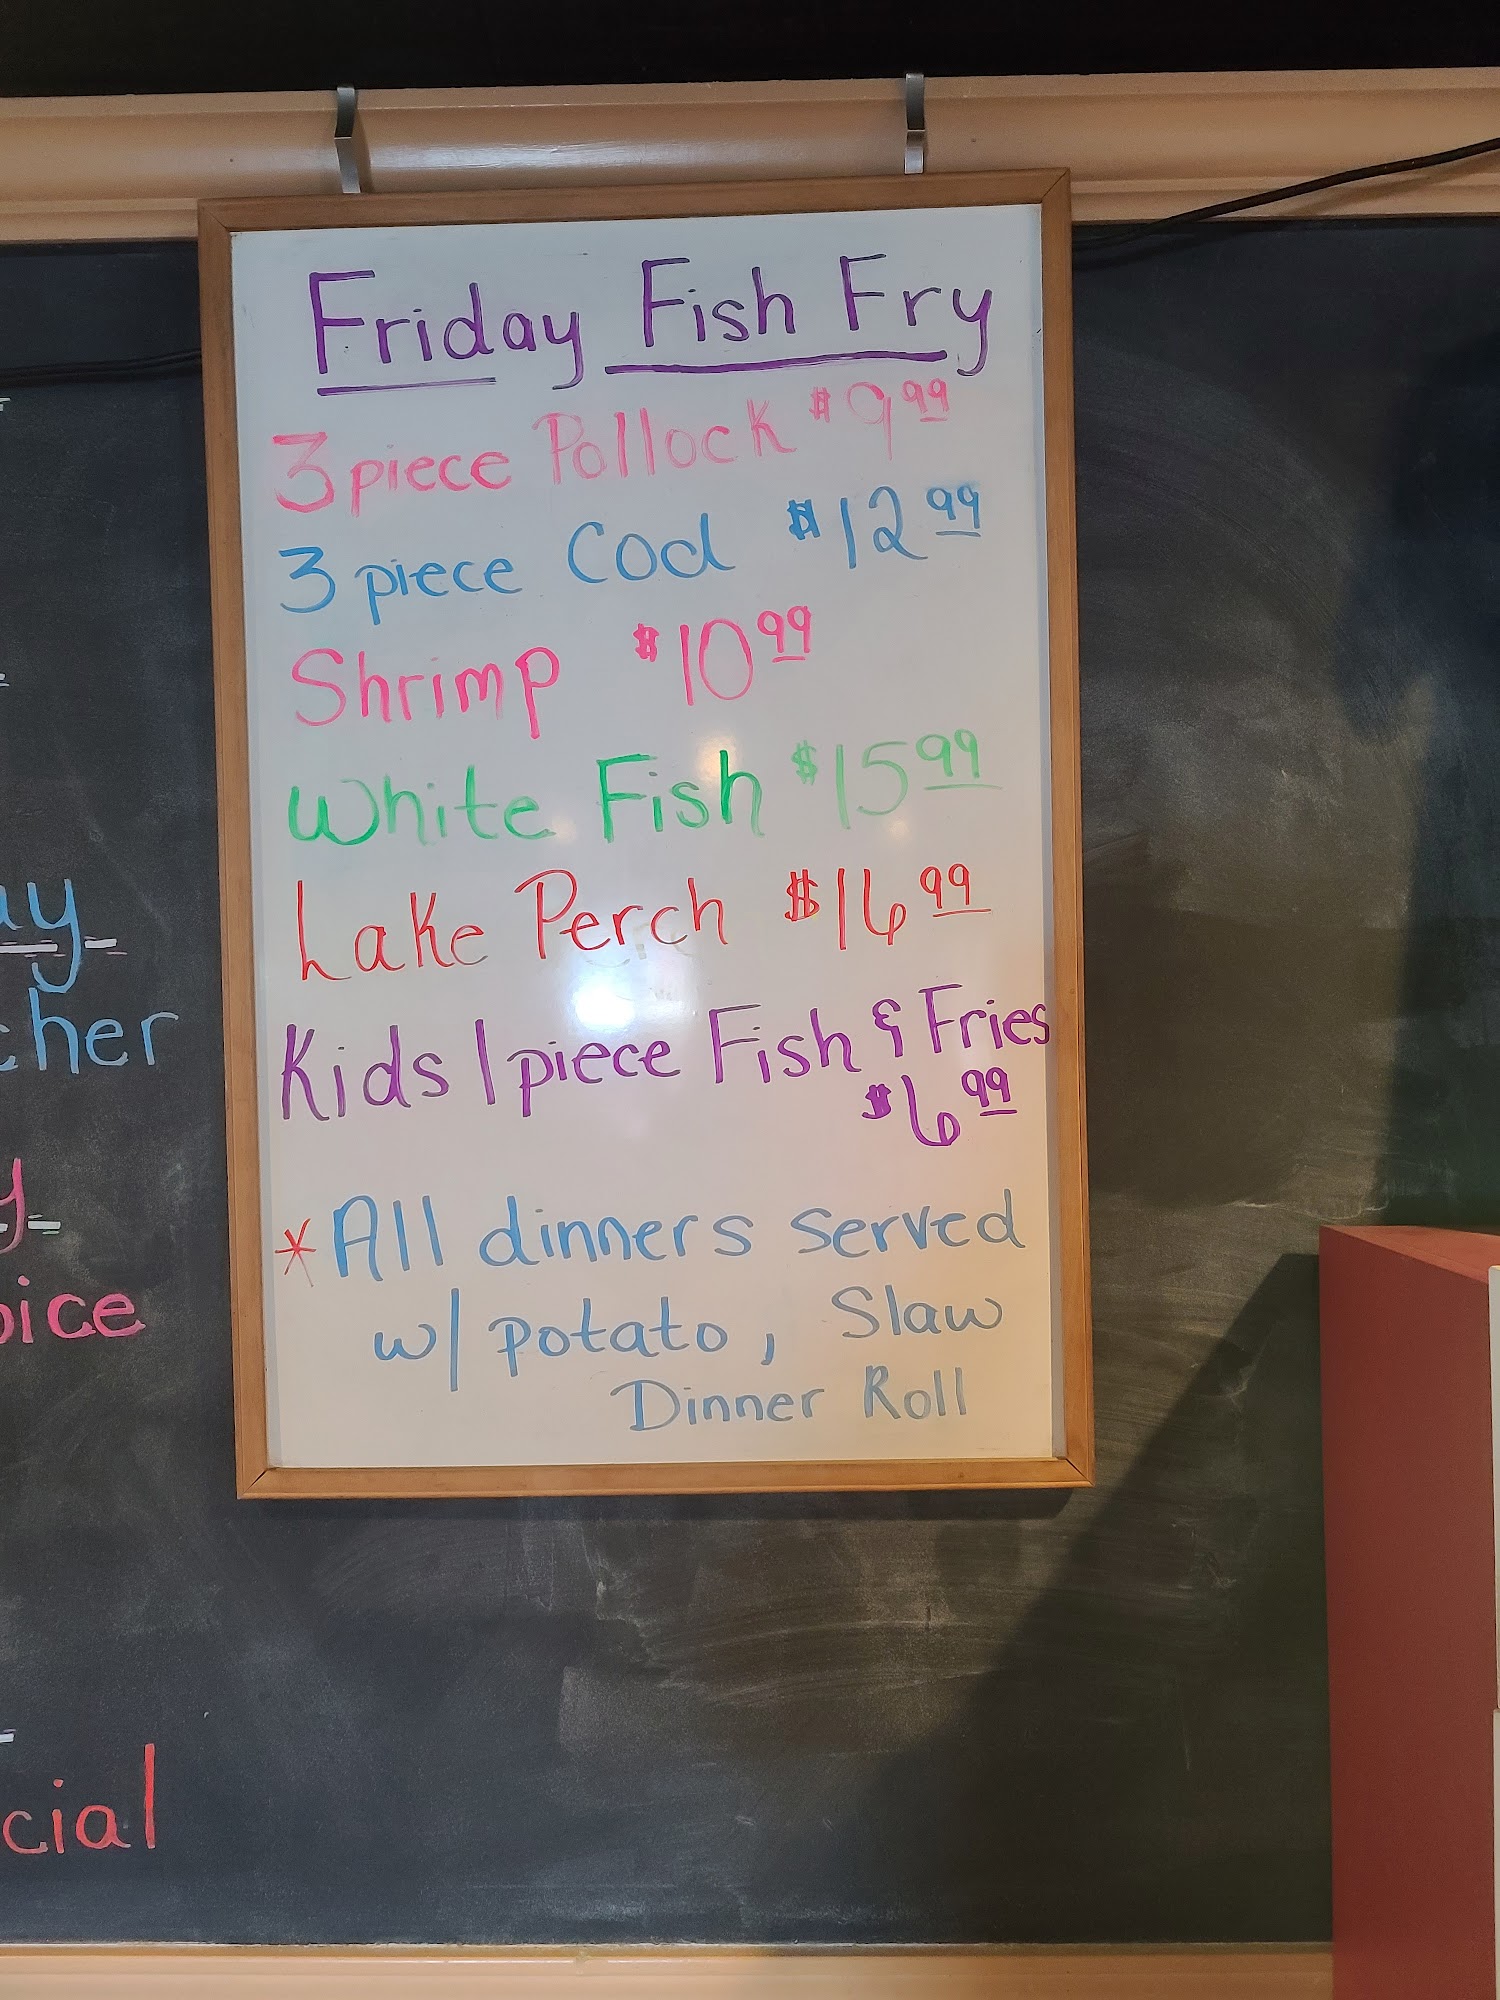 Friday Fish Fry
3 piece Pollock $9.99
3 piece Cod $12.99
Shrimp $10.99
White Fish $15.99
Lake Perch $16.99
Kids 1 piece Fish & Fries
$6.99
*All dinners served
w/ potato, Slaw
Dinner Roll